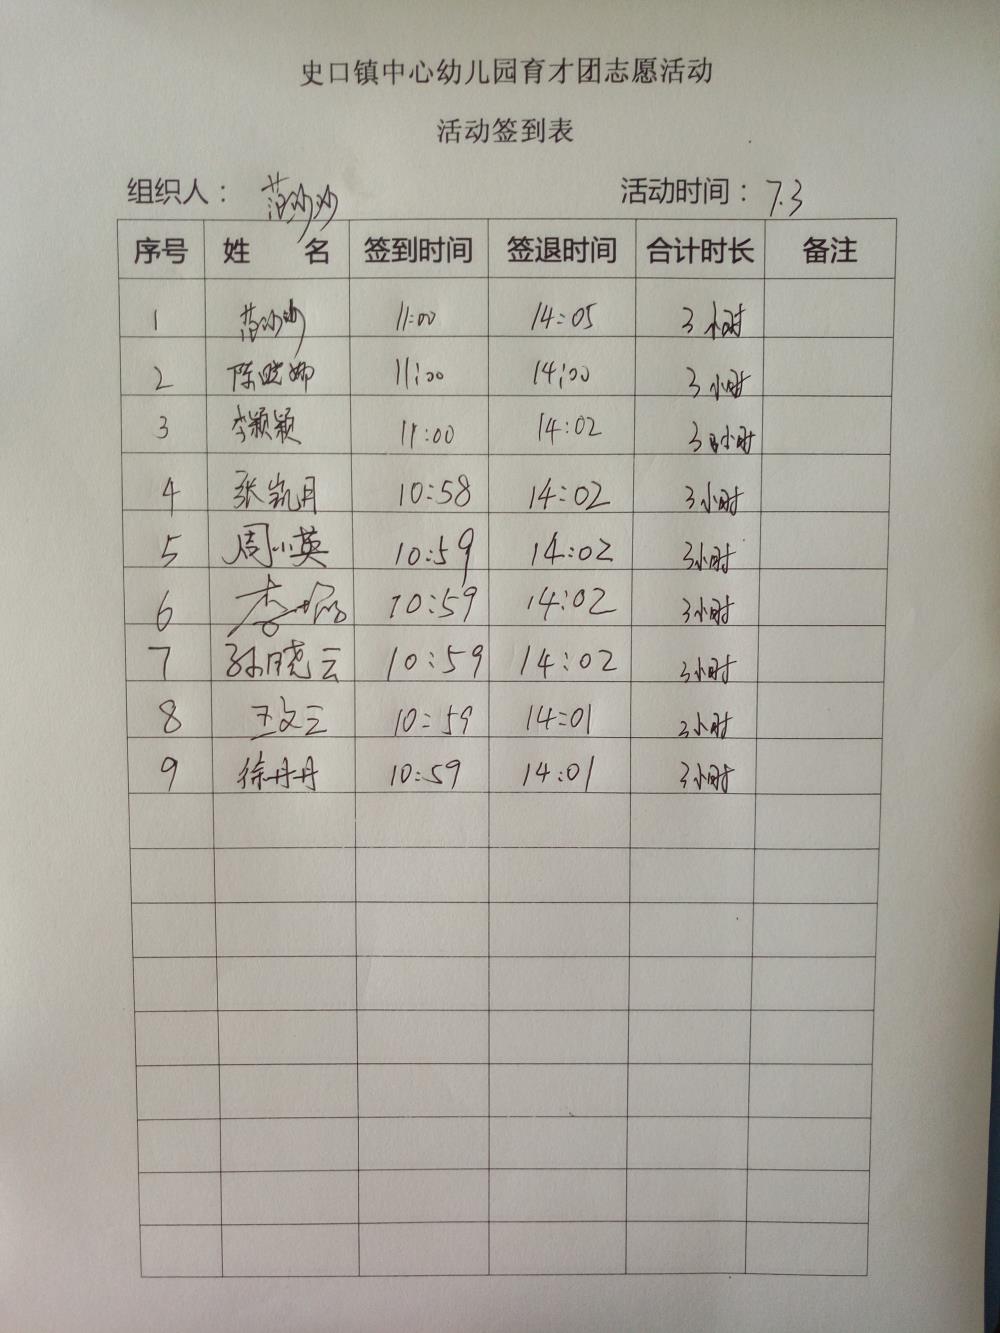 史口镇中心幼儿园育才团志愿活动
活动签到表
组织人： 范沙沙 活动时间：7.3
序号 姓名 签到时间 签退时间 合计时长 备注
1 范沙沙 11:00 14:05 3小时
2 陈晓娜 11:00 14:00 3小时
3 李颖颖 11:00 14:02 3小时
4 张凯月 10:58 14:02 3小时
5 周小英 10:59 14:02 3小时
6 李 10:59 14:02 3小时
7 孙晓云 10:59 14:02 3小时
8 王文三 10:59 14:01 3小时
9 徐丹丹 10:59 14:01 3小时